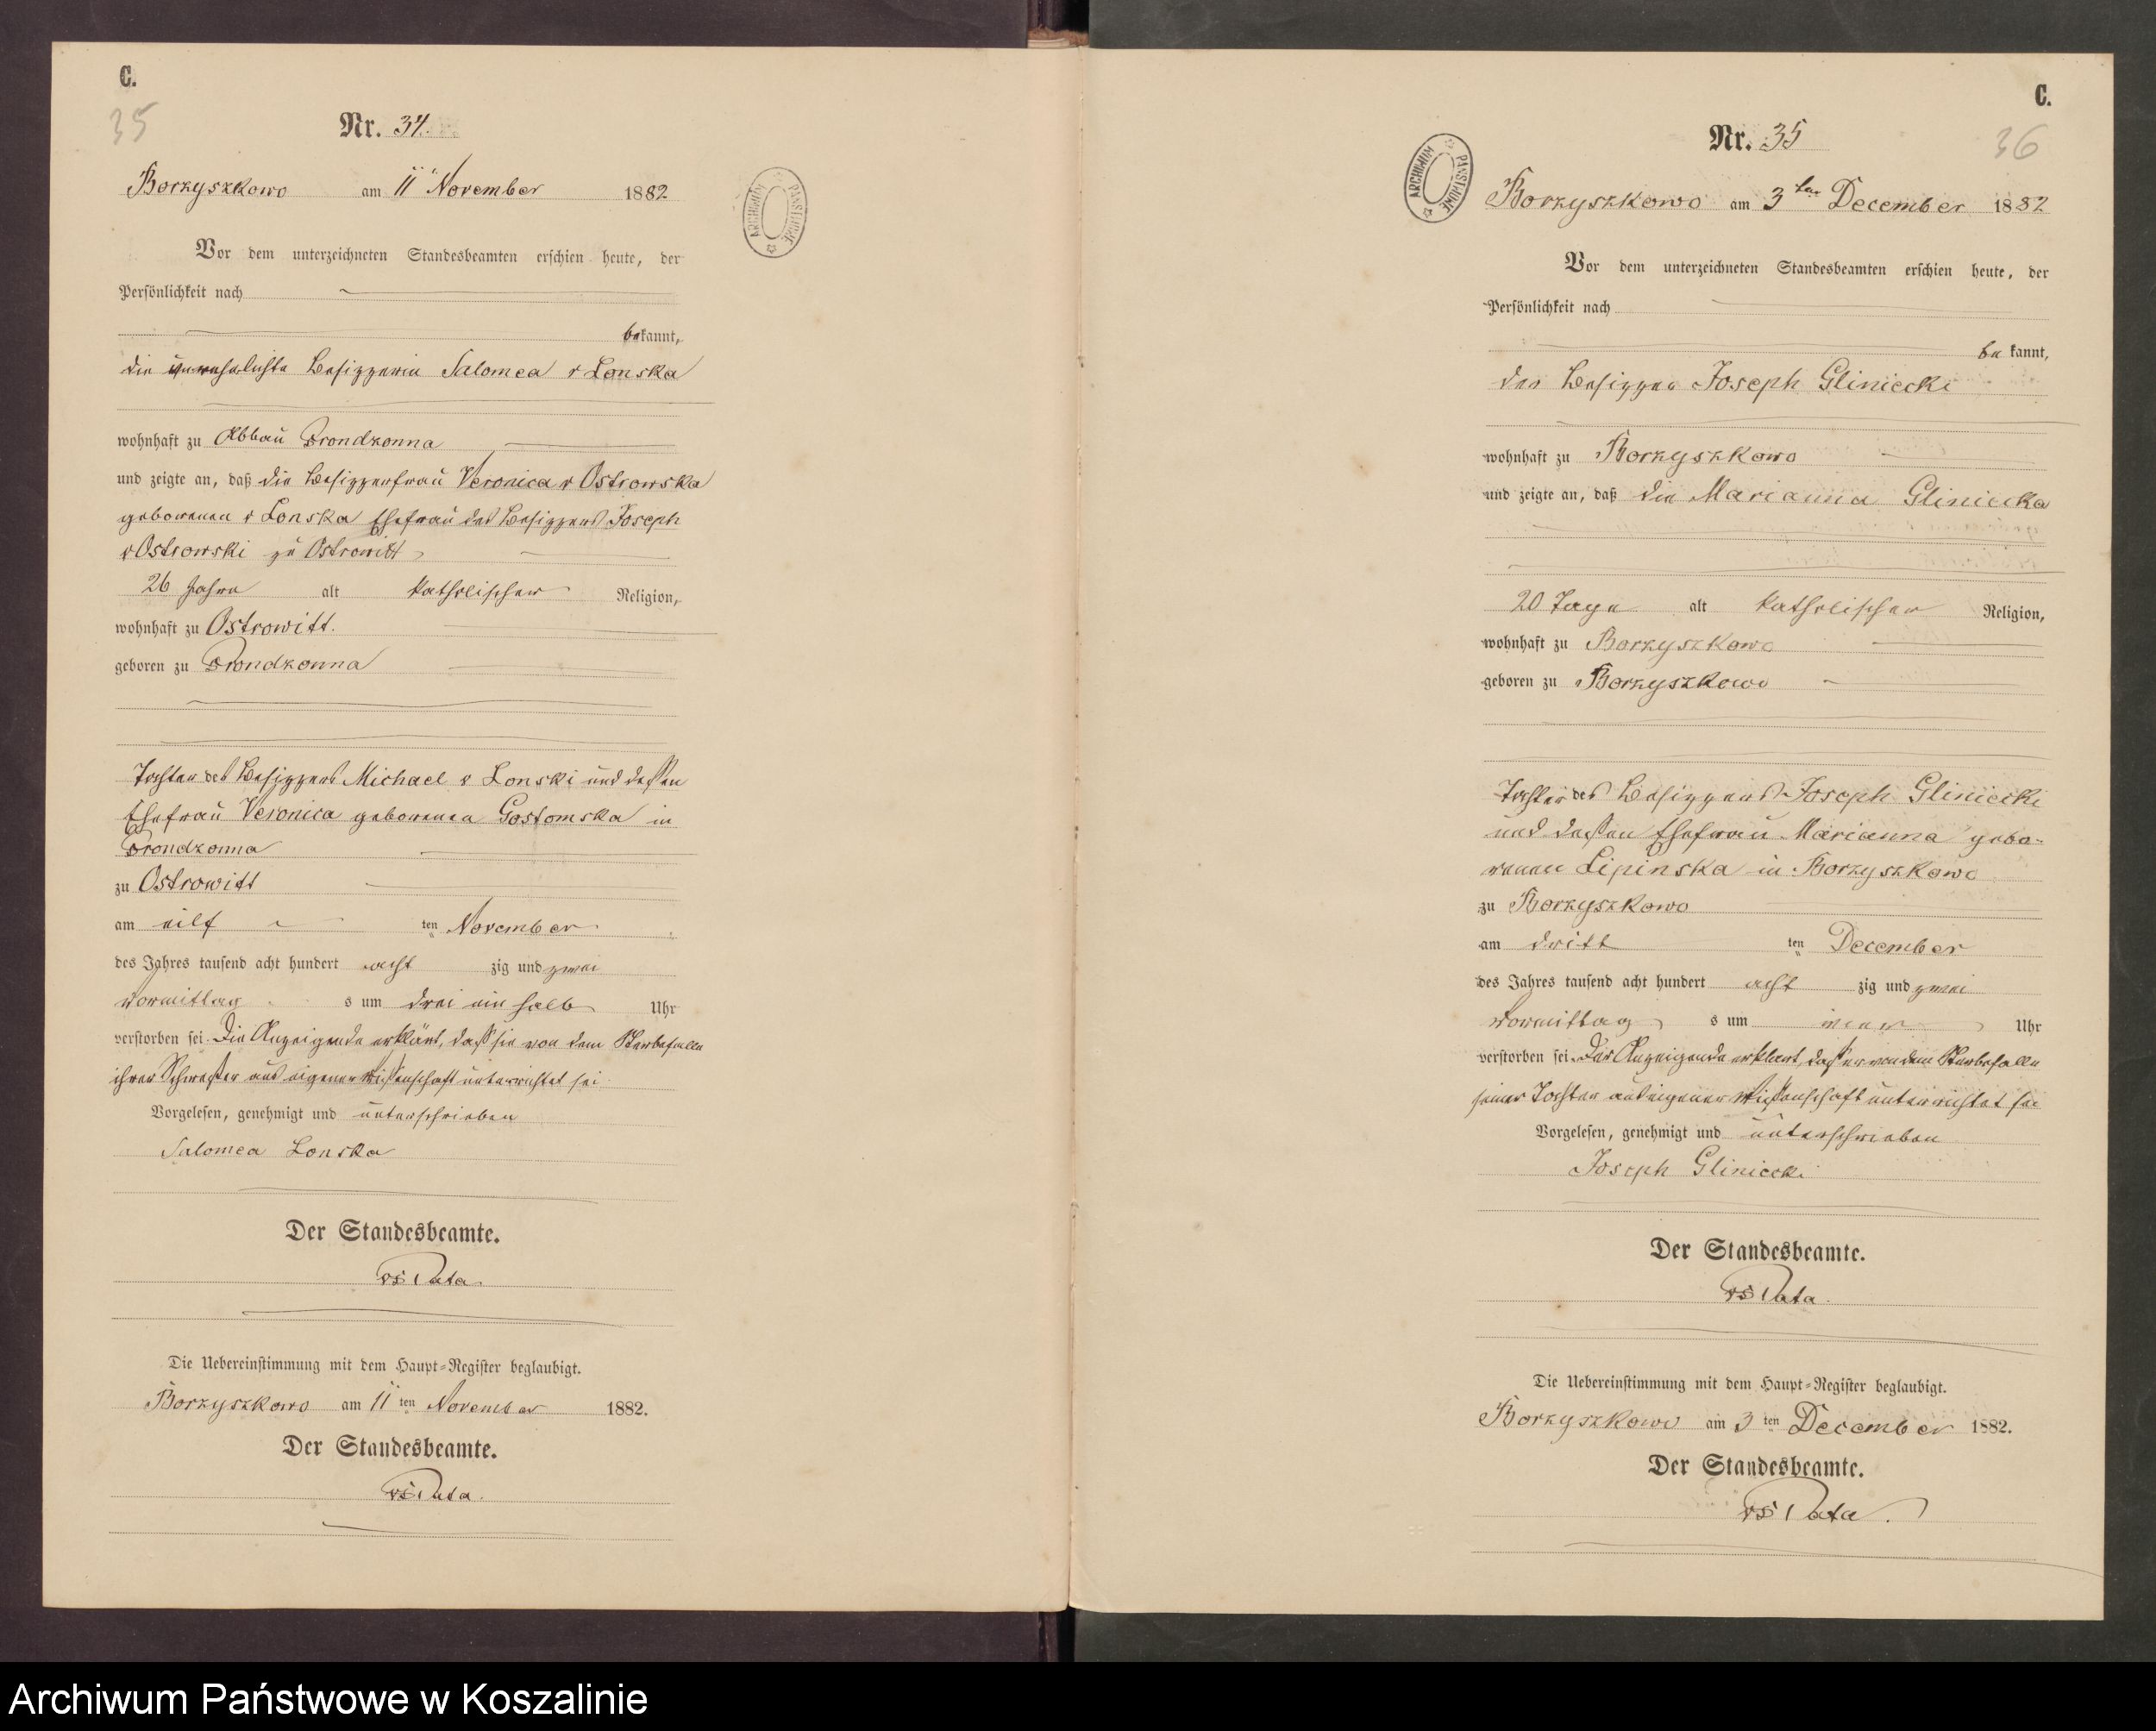 C.
35
Nr. 34.
Borzyszkowo am 11ten November 1882
Vor dem unterzeichneten Standesbeamten erschien heute, der
Persönlichkeit nach
bekannt,
die unverehelichte Besitzerin Salomea v Lonska
wohnhaft zu Abbau Prondzonna
und zeigte an, daß die Besitzerfrau Veronica v Ostrowska
geborenen v Lonska Ehefrau des Besitzers Joseph
v Ostrowski zu Ostrowitt
26 Jahre alt katholischer Religion,
wohnhaft zu Ostrowitt.
geboren zu Prondzonna
Tochter des Besitzers Michael v Lonski und dessen
Ehefrau Veronica geborenen Gostomska in
Prondzonna
zu Ostrowitt
am eilf ten November
des Jahres tausend acht hundert acht zig und zwei
vormittag s um drei ein halb Uhr
verstorben sei. Die Anzeigende erklärt, daß sie von dem Sterbefalle
ihrer Schwester aus eigener Wissenschaft unterrichtet sei
Vorgelesen, genehmigt und unterschrieben
Salomea Lonska
Der Standesbeamte.
Die Uebereinstimmung mit dem Haupt-Register beglaubigt.
Borzyszkowo am 11ten November 1882.
Der Standesbeamte.
ARCHIWUM PAŃSTWOWE
C.
36
Nr. 35
Borzyszkowo am 3ten December 1882
Vor dem unterzeichneten Standesbeamten erschien heute, der
Persönlichkeit nach
be kannt,
der Besitzer Joseph Gliniecki
wohnhaft zu Borzyszkowo
und zeigte an, daß die Marianna Gliniecka
20 Tage alt katholischer Religion,
wohnhaft zu Borzyszkowo
geboren zu Borzyszkowo
Tochter des Besitzers Joseph Gliniecki
und dessen Ehefrau Marianna gebo-
renen Lipinska in Borzyszkowo
zu Borzyszkowo
am dritt ten December
des Jahres tausend acht hundert acht zig und zwei
vormittag s um Uhr
verstorben sei. Der Anzeigende erklärt, daß er von dem Sterbefalle
seiner Tochter aus eigener Wissenschaft unterrichtet sei
Vorgelesen, genehmigt und unterschrieben
Joseph Gliniecki
Der Standesbeamte.
Die Uebereinstimmung mit dem Haupt-Register beglaubigt.
Borzyszkowo am 3ten December 1882.
Der Standesbeamte.
ARCHIWUM PAŃSTWOWE
Archiwum Państwowe w Koszalinie